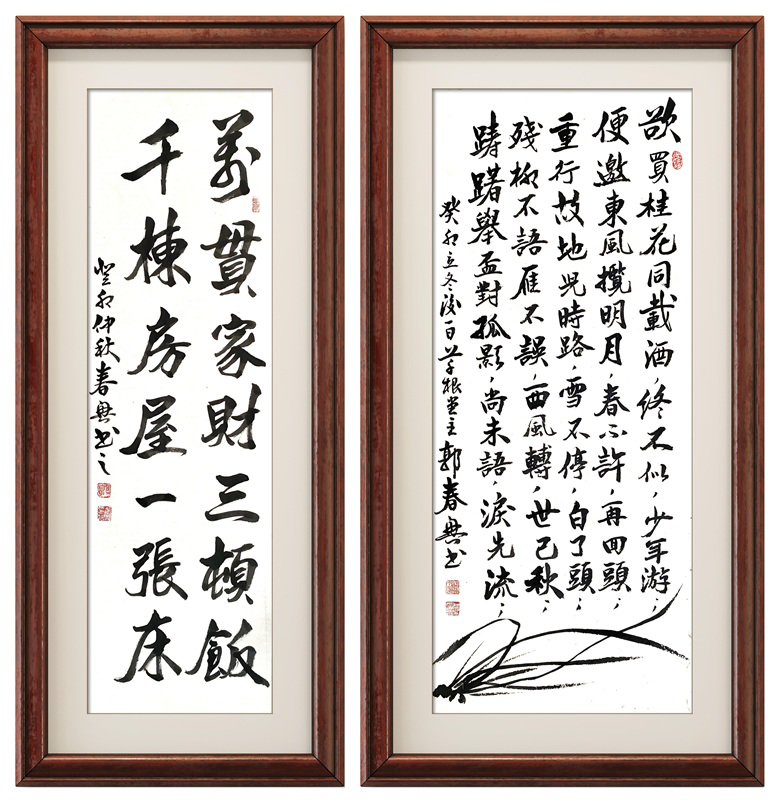 萬貫家財三頓飯
千棟房屋一張床
癸卯仲秋春興书之
欲買桂花同載酒，終不似，少年游；
便邀東風攬明月，春不許，再回頭；
重行故地兒時路，雪不停，白了頭；
殘柳不語雁不誤，西風轉，世已秋；
躊躇舉盃對孤影，尚未語，淚先流；
癸卯立冬後一日草根堂主郭春興书